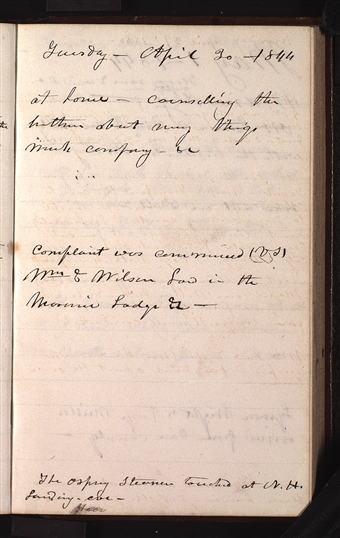 Tuesday — April 30 — 1844
at home — counselling the
brethren about many things
much company &c
complaint was commenced (V S)
Wm & Wilson Law in the
Masonic Lodge &c —
The Osprey Steamer touched at N. H.
Landing. eve —